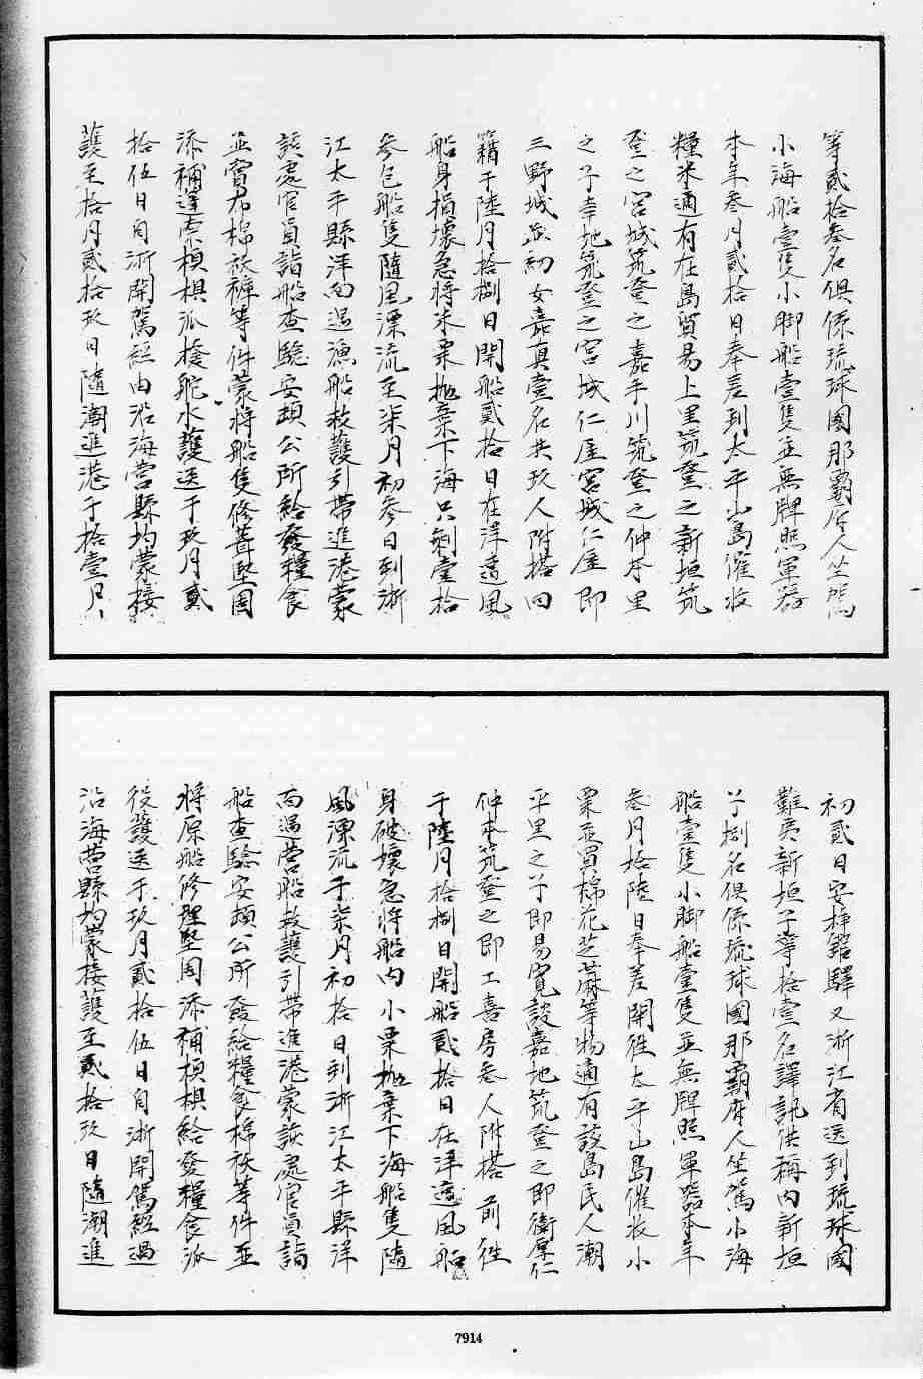 等貳拾叁名俱係琉球國那霸府人坐駕
小海船壹隻小脚船壹隻並無牌照軍器
本年叁月貳拾日奉差到太平山島催收
糧米適有在島貿易上里筑登之新垣筑
登之宮城筑登之嘉手川筑登之仲本里
之子幸地筑登之宮城仁屋宮城仁屋即
三野城並幼女嘉真壹名共玖人附搭回
籍于陸月拾捌日開船貳拾日在洋遭風
船身損壞急將米粟拋棄下海只剩壹拾
叁包船隻隨風漂流至柒月初參日到浙
江太平縣洋面遇漁船救護引帶進港蒙
該處官員詣船查驗安頓公所給發糧食
並賞布棉衣褲等件蒙將船隻修葺堅固
添補篷索槓椇派撥舵水護送于玖月貳
拾伍日自浙開駕經由沿海營縣均蒙接
護至拾月貳拾玖日隨潮進港于拾壹月
初貳日安揷館驛又浙江省送到琉球國
難夷新垣子等拾壹名譯訊供稱內新垣
子捌名俱係琉球國那霸府人坐駕小海
船壹隻小脚船壹隻並無牌照軍器本年
叁月拾陸日奉差開徃太平山島催收小
粟並買棉花芝蔴等物適有該島民人潮
平里之子即易寬談嘉地筑登之即衛厚仁
仲本筑登之即工喜房叁人附搭前徃
于陸月拾捌日開船貳拾日在洋遭風船
身破壞急將船內小粟拋棄下海船隻隨
風漂流于柒月初拾日到浙江太平縣洋
面遇營船救護引帶進港蒙該處官員詣
船查驗安頓公所發給糧食棉衣等件並
將原船修理堅固添補槓椇給發糧食派
役護送于玖月貳拾伍日自浙開駕經過
沿海營縣均蒙接護至貳拾玖日隨潮進
7914